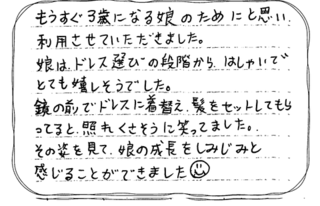 もうすぐ3歳になる娘のためにと思い
利用させていただきました。
娘は、ドレス選びの段階から、はしゃいで
とても嬉しそうでした。
鏡の前でドレスに着替え、髪をセットしてもら
ってると、照れくさそうに笑ってました。
その姿を見て、娘の成長をしみじみと
感じることができました